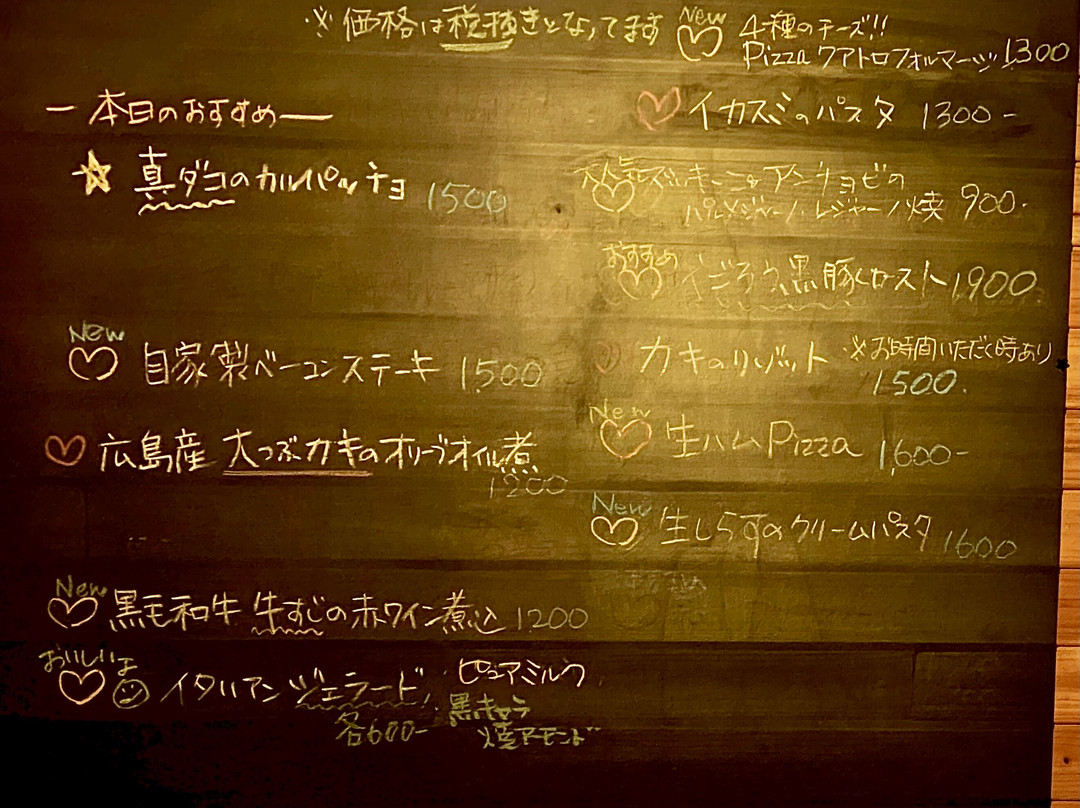 ※価格は税抜きとなってます
ー本日のおすすめー
☆真ダコのカルパッチョ 1500
New
♡自家製ベーコンステーキ 1,500
♡広島産 大つぶカキのオリーブオイル煮
1200
New
♡黒毛和牛 牛すじの赤ワイン煮込 1200
おいしいよ
♡イタリアンジェラード ピュアミルク
各600- 黒キャラ
焼アーモンド
New
♡4種のチーズ!!
Pizzaクアトロフォルマージ 1300
♡イカスミのパスタ 1300-
大人気
♡ズッキーニとアンチョビの
パルメジャーノ・レジャーノ焼 900-
おすすめ
♡黒豚ロースト 1900
♡カキのリゾット ※お時間いただく時あり
1500.
New
♡生ハムPizza 1,600-
New
♡生しらすのクリームパスタ 1600